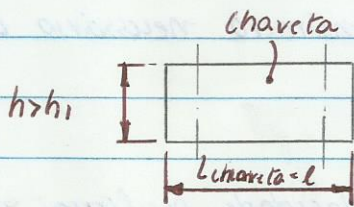 chaveta
h>h1
Lchaveta=l